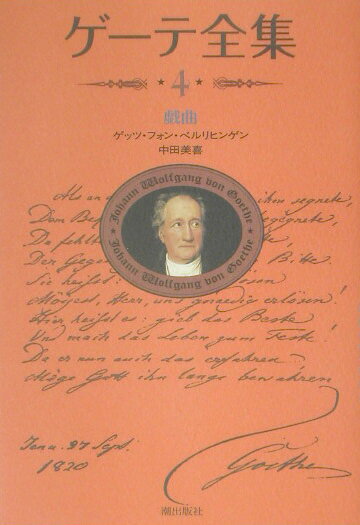 ゲーテ全集
4
戯曲
ゲッツ・フォン・ベルリヒンゲン
中田美喜
Johann Wolfgang von Goethe
Johann Wolfgang von Goethe
Als an ihm segnete,
Dem begegnete,
Da fehlt
Der Bitte.
Sie heißt: lösen
Mögest, Herr, uns gnaedig erlösen!
Hier heißt es: gieb das Beste
Und mach das Leben zum Feste.
Da er nun auch das erfahren
Möge Gott ihn lange bewahren
Jena. 27 Sept.
1820
Goethe
潮出版社